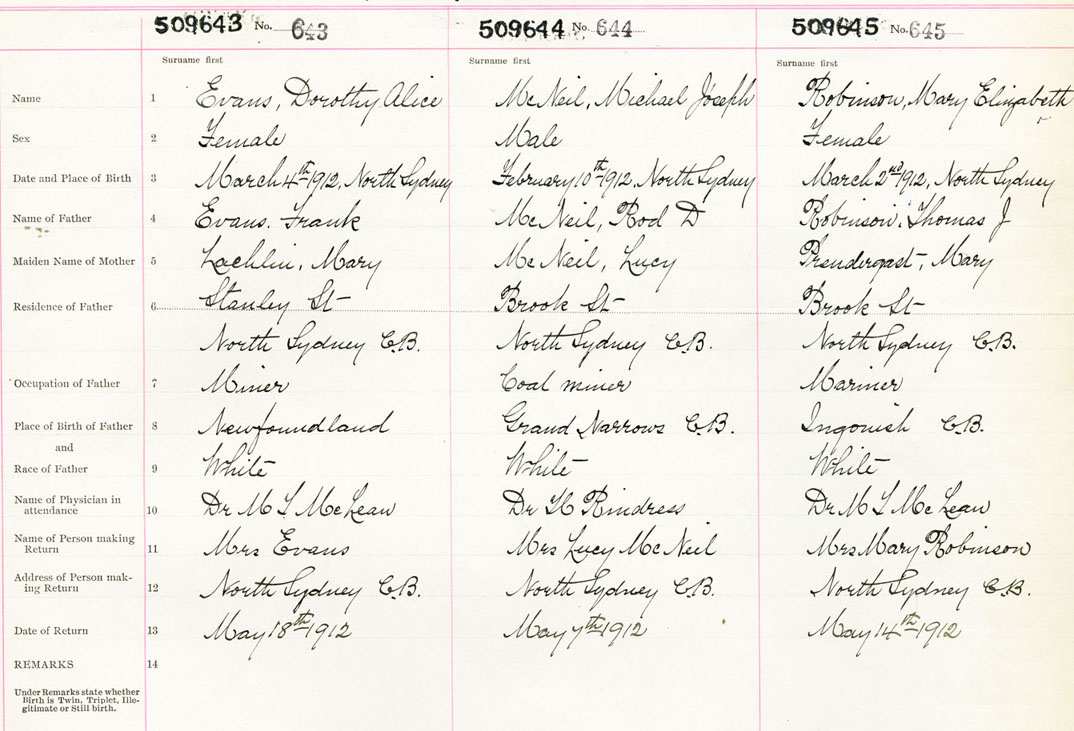 509643 No. 643 509644 No. 644 509645 No. 645
Surname first Surname first Surname first
Name 1 Evans, Dorothy Alice McNeil, Michael Joseph Robinson, Mary Elizabeth
Sex 2 Female Male Female
Date and Place of Birth 3 March 4th 1912, North Sydney February 10th 1912, North Sydney March 2nd 1912, North Sydney
Name of Father 4 Evans. Frank McNeil, Rod D Robinson, Thomas J
Maiden Name of Mother 5 Lachlin, Mary McNeil, Lucy Prendergast, Mary
Residence of Father 6 Stanley St Brook St Brook St
North Sydney C.B. North Sydney C.B. North Sydney C.B.
Occupation of Father 7 Miner Coal miner Mariner
Place of Birth of Father 8 Newfoundland Grand Narrows C.B. Ingonish C.B.
and
Race of Father 9 White White White
Name of Physician in
attendance 10 Dr M S McLean Dr Rindress Dr M S McLean
Name of Person making
Return 11 Mrs Evans Mrs Lucy McNeil Mrs Mary Robinson
Address of Person mak-
ing Return 12 North Sydney C.B. North Sydney C.B. North Sydney C.B.
Date of Return 13 May 18th 1912 May 7th 1912 May 14th 1912
REMARKS 14
Under Remarks state whether
Birth is Twin, Triplet, Ille-
gitimate or Still-birth.